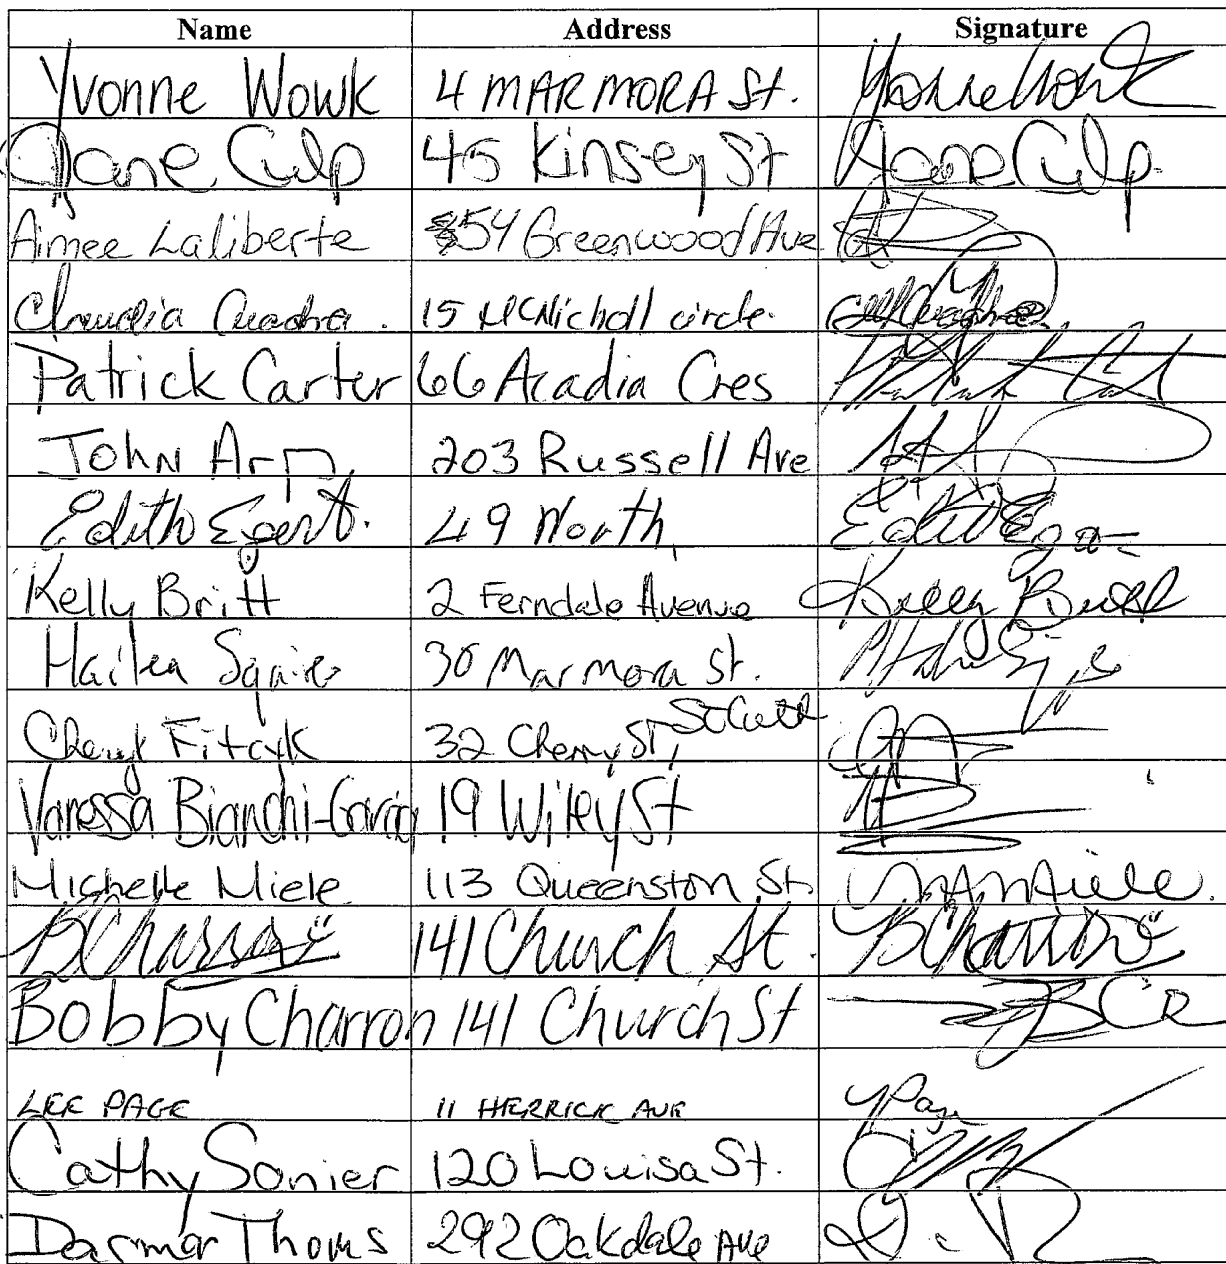 Name Address Signature
Yvonne Wowk 4 MARMORA St. Yvonne Wowk
Jane Culp 45 Kinsey St Jane Culp
Aimee Laliberte 54 Greenwood Ave
Claudia Cuadra. 15 McNicholl circle.
Patrick Carter 66 Acadia Cres
John Arp 203 Russell Ave
Edith Egert. 49 North
Kelly Britt 2 Ferndale Avenue Kelly Britt
Hailea Squire 30 Marmora St.
Cheryl 32 Cherry St,
Vanessa Bianchi-Garcia 19 Wiley St
Michelle Miele 113 Queenston St. Miele.
141 Church St.
Bobby Charron 141 Church St BCR
LEE PAGE 11 HERRICK AVE Page
Cathy Sonier 120 Louisa St.
Thoms 292 Oakdale Ave